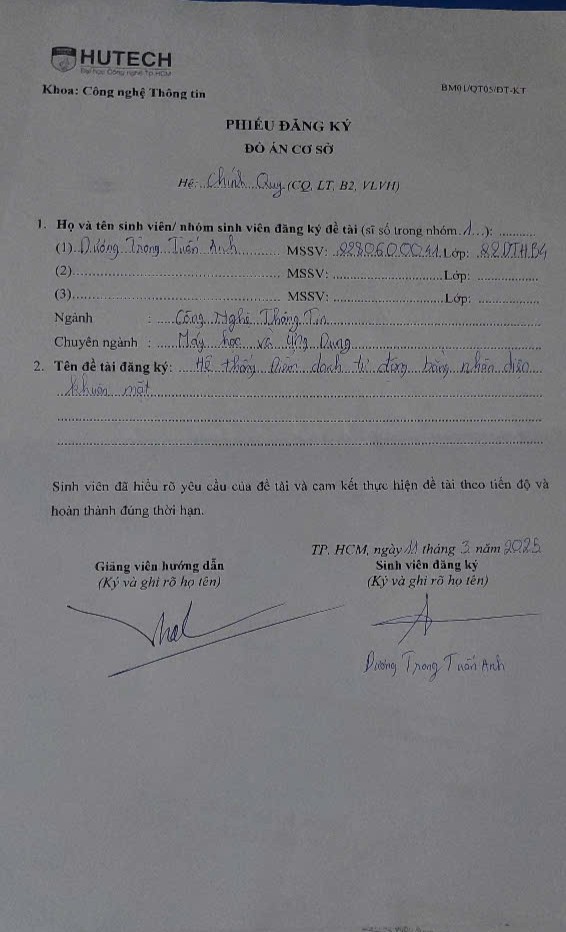 HUTECH
Đại học Công nghệ Tp.HCM
Khoa: Công nghệ Thông tin
BM01/QT05/ĐT-KT
PHIẾU ĐĂNG KÝ
ĐỒ ÁN CƠ SỞ
Hệ: Chính Quy (CQ, LT, B2, VLVH)
1. Họ và tên sinh viên/ nhóm sinh viên đăng ký đề tài (sĩ số trong nhóm 1...): ..........
(1) Dương Trọng Tuấn Anh MSSV: 2280600041 Lớp: 22DTHB4
(2) MSSV: Lớp:
(3) MSSV: Lớp:
Ngành : Công Nghệ Thông Tin
Chuyên ngành : Máy học và Ứng Dụng
2. Tên đề tài đăng ký: Hệ thống điểm danh tự động bằng nhận diện
khuôn mặt
Sinh viên đã hiểu rõ yêu cầu của đề tài và cam kết thực hiện đề tài theo tiến độ và
hoàn thành đúng thời hạn.
TP. HCM, ngày 11 tháng 3 năm 2025
Giảng viên hướng dẫn Sinh viên đăng ký
(Ký và ghi rõ họ tên) (Ký và ghi rõ họ tên)
Dương Trọng Tuấn Anh